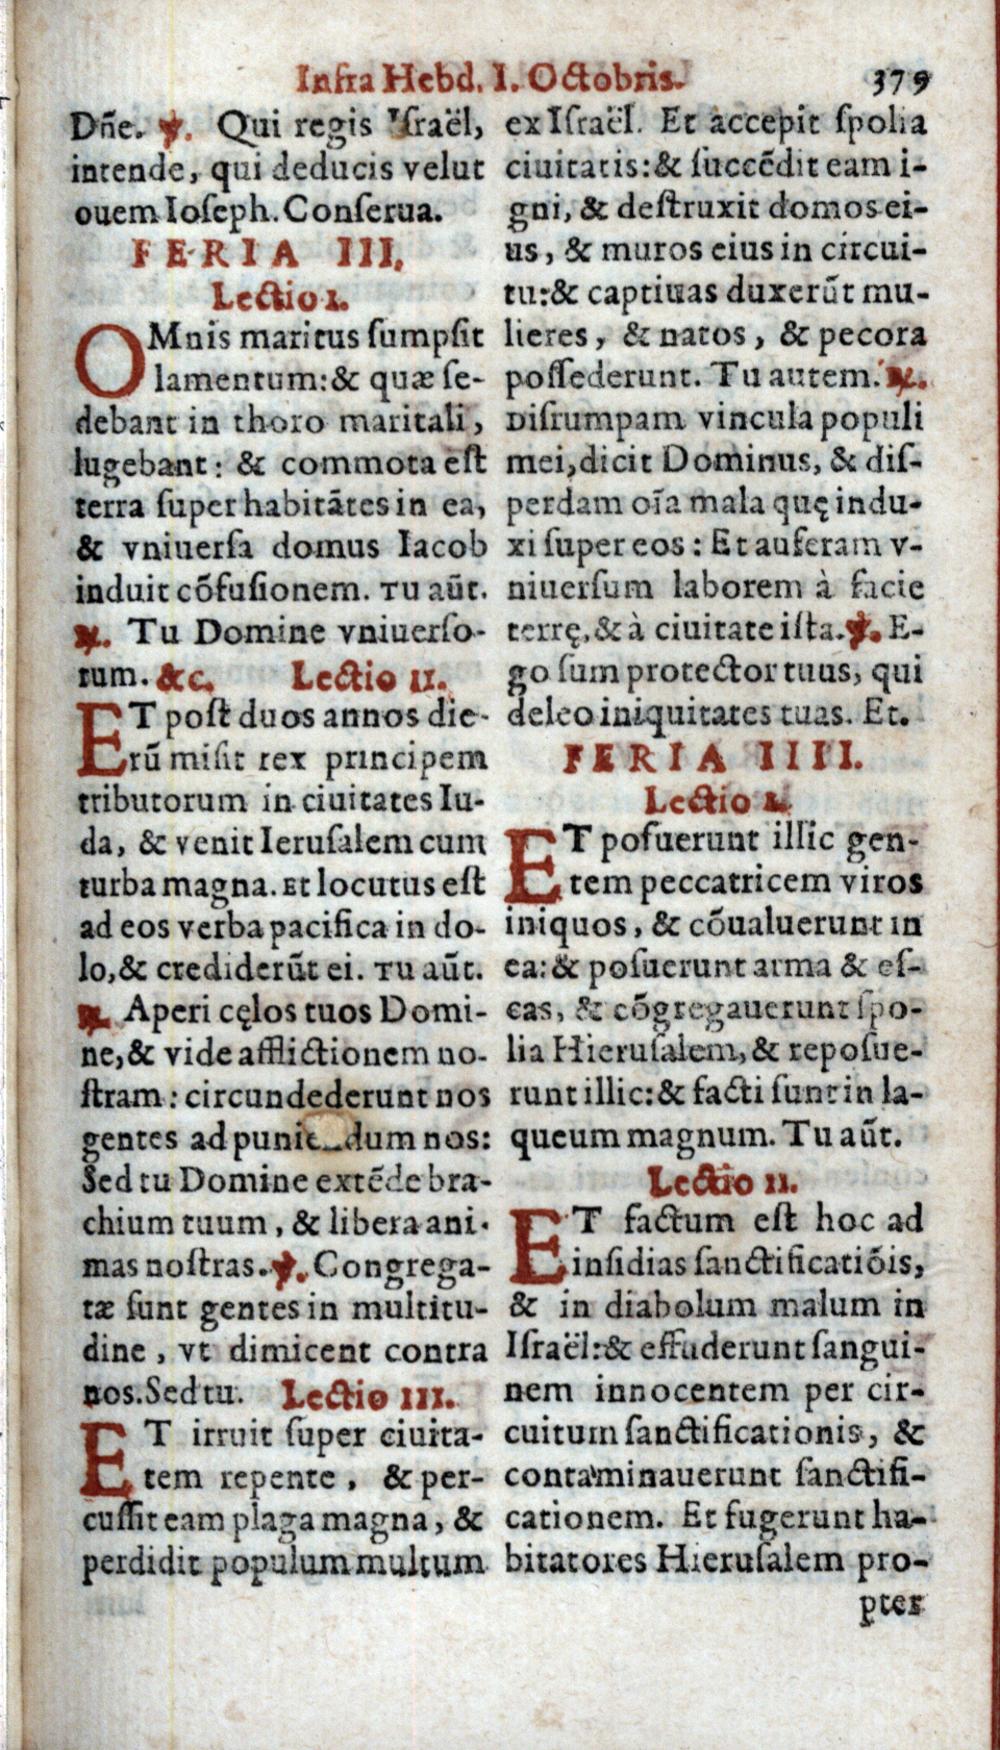 Infra Hebd. I. Octobris. 379
Dñe. ℣. Qui regis Iſraël,
intende, qui deducis velut
ouem Ioſeph. Conſerua.
FERIA III.
Lectio I.
OMnis maritus ſumpſit
lamentum:& quæ ſe-
debant in thoro maritali,
lugebant: & commota eſt
terra ſuper habitātes in ea,
& vniuerſa domus Iacob
induit cōfuſionem. Tu aūt.
℟. Tu Domine vniuerſo-
rum. &c. Lectio II.
ET poſt duos annos die-
rū miſit rex principem
tributorum in ciuitates Iu-
da, & venit Ieruſalem cum
turba magna. Et locutus eſt
ad eos verba pacifica in do-
lo,& crediderūt ei. Tu aūt.
℟. Aperi cęlos tuos Domi-
ne,& vide afflictionem no-
ſtram: circundederunt nos
gentes ad punie dum nos:
Sed tu Domine extēde bra-
chium tuum, & libera ani-
mas noſtras. ℣. Congrega-
tæ ſunt gentes in multitu-
dine, vt dimicent contra
nos. Sed tu. Lectio III.
ET irruit ſuper ciuita-
tem repente, & per-
cuſſit eam plaga magna, &
perdidit populum multum
ex Iſraël. Et accepit ſpolia
ciuitatis:& ſuccēdit eam i-
gni, & deſtruxit domos ei-
us, & muros eius in circui-
tu:& captiuas duxerūt mu-
lieres, & natos, & pecora
poſſederunt. Tu autem. ℟.
Diſrumpam vincula populi
mei, dicit Dominus, & diſ-
perdam oīa mala quę indu-
xi ſuper eos: Et auferam v-
niuerſum laborem à facie
terrę,& à ciuitate iſta. ℣. E-
go ſum protector tuus, qui
deleo iniquitates tuas. Et.
FERIA IIII.
Lectio I.
ET poſuerunt illic gen-
tem peccatricem viros
iniquos, & cōualuerunt in
ea:& poſuerunt arma & eſ-
cas, & cōgregauerunt ſpo-
lia Hieruſalem,& repoſue-
runt illic:& facti ſunt in la-
queum magnum. Tu aūt.
Lectio II.
ET factum eſt hoc ad
inſidias ſanctificatiōis,
& in diabolum malum in
Iſraël:& effuderunt ſangui-
nem innocentem per cir-
cuitum ſanctificationis, &
contaminauerunt ſanctifi-
cationem. Et fugerunt ha-
bitatores Hieruſalem pro-
pter